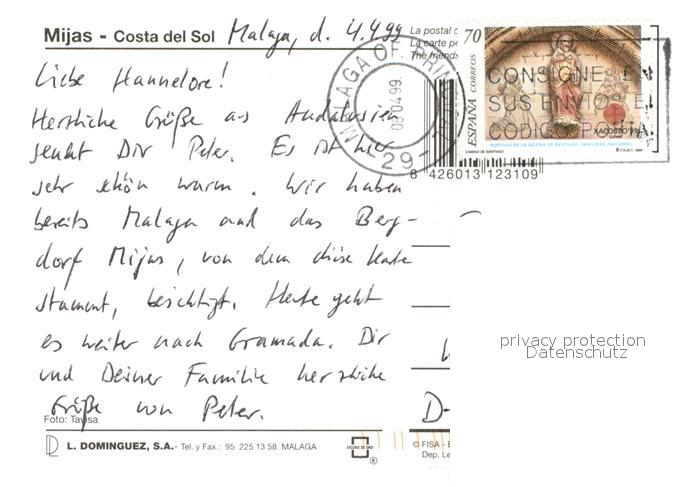 Mijas - Costa del Sol Malaga, d. 4.4.99
La postal
La carte
The friends
Liebe Hannelore!
Herzliche Grüße aus Andalusien
sendet Dir Peter. Es ist hier
sehr schön warm. Wir haben
bereits Malaga und das Berg-
dorf Mijas, von dem diese Karte
stammt, besichtigt. Heute geht
es weiter nach Granada. Dir
und Deiner Familie herzliche
Grüße von Peter.
Foto: Tavisa
L. DOMINGUEZ, S.A.- Tel. y Fax.: 95 225 13 58 MALAGA
MALAGA OF. PRIN
04 99
-29-
70
ESPAÑA CORREOS
CONSIGNE E
SUS ENVIOS E
CODIGO P
XACOBEO'99
PORTADA DE LA IGLESIA DE SANTIAGO. SANGÜESA (NAVARRA)
CAMINO DE SANTIAGO
F.N.M.T. 1999
8 426013 123109
privacy protection
Datenschutz
D-
© FISA - E
Dep. Le